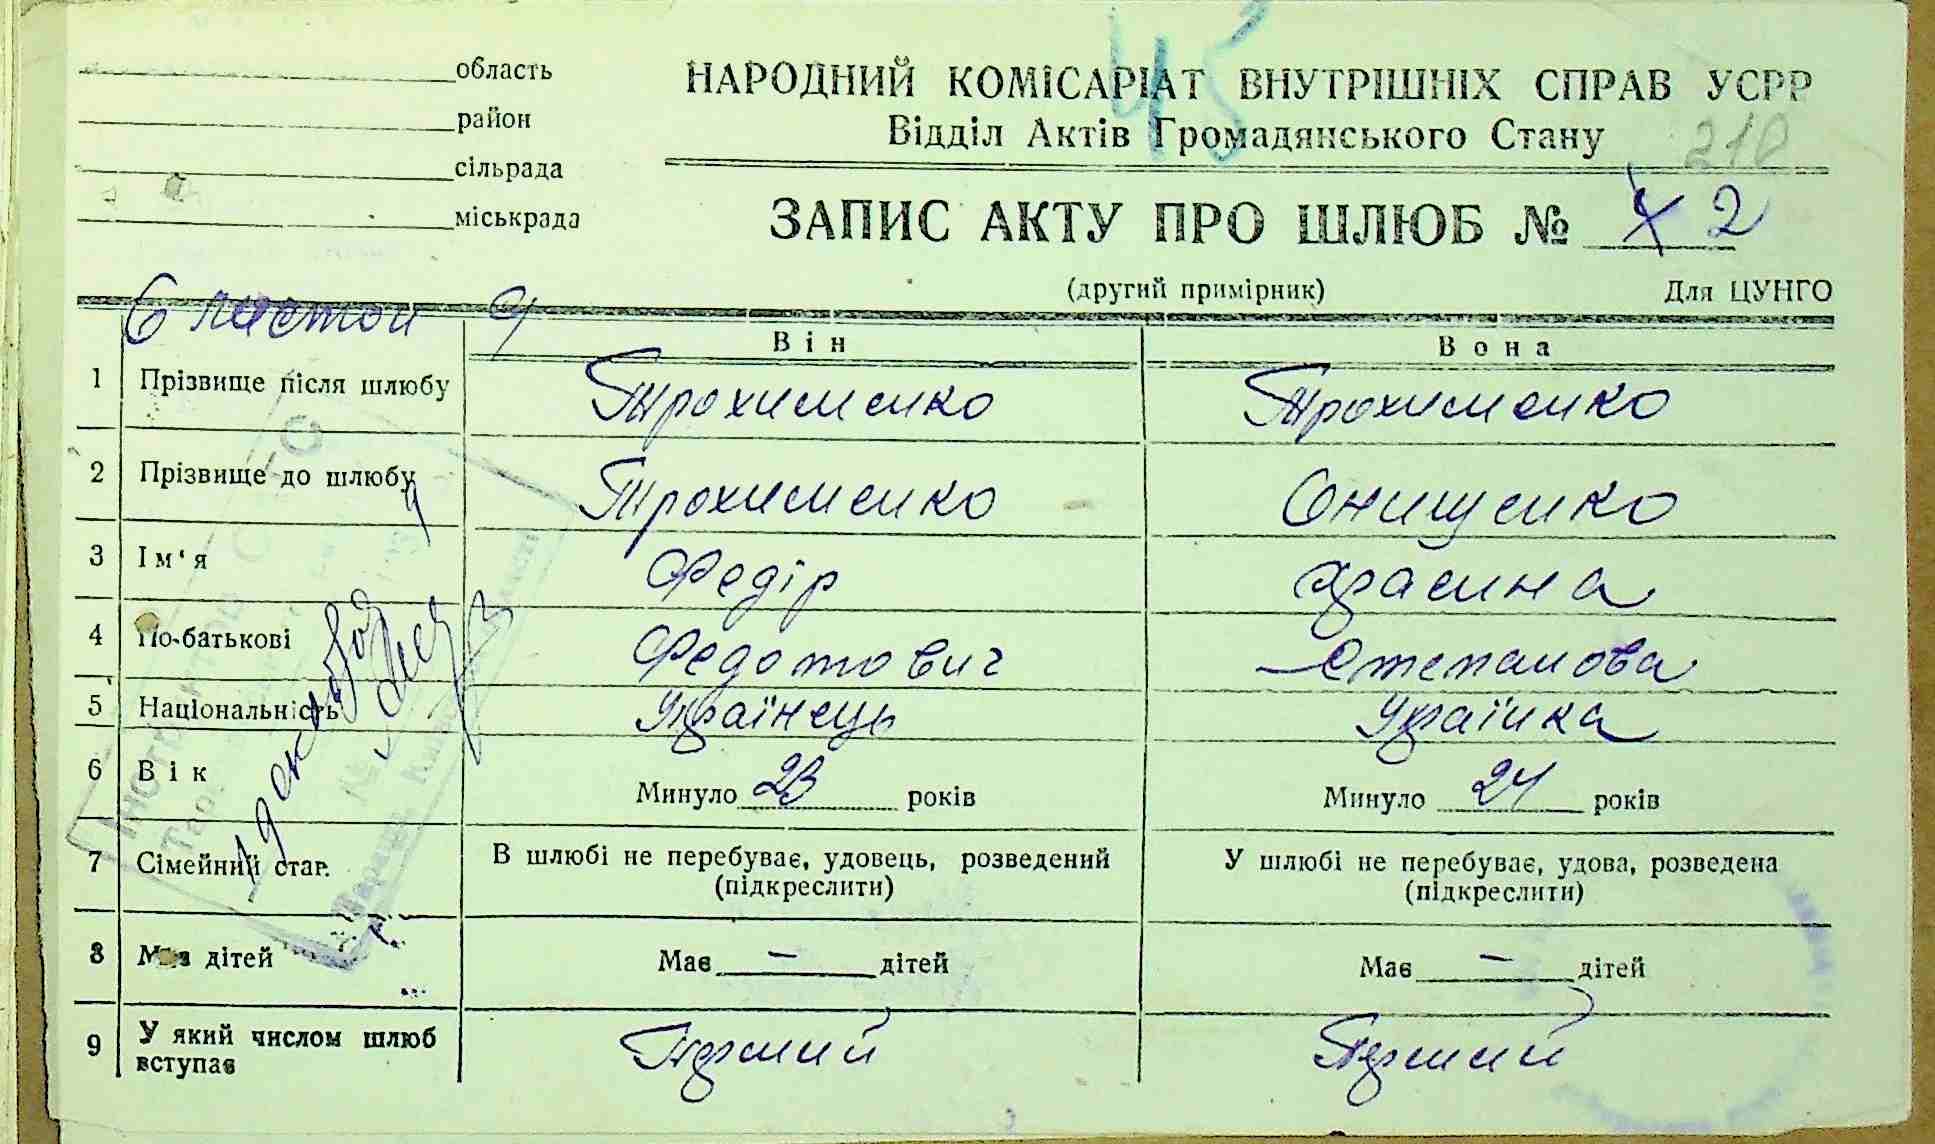 45
область
район
сільрада
міськрада
НАРОДНИЙ КОМІСАРІАТ ВНУТРІШНІХ СПРАВ УСРР
Відділ Актів Громадянського Стану
210
ЗАПИС АКТУ ПРО ШЛЮБ № 2
(другий примірник) Для ЦУНГО
6
Він Вона
1 Прізвище після шлюбу Трохименко Трохименко
2 Прізвище до шлюбу Трохименко Онищенко
3 Ім‘я Федір Красина
4 По-батькові Федотович Степанова
5 Національність Українець Українка
6 Вік Минуло 23 років Минуло 24 років
7 Сімейний стан. В шлюбі не перебуває, удовець, розведений У шлюбі не перебуває, удова, розведена
(підкреслити) (підкреслити)
8 Має дітей Має — дітей Має — дітей
9 У який числом шлюб вступає Перший Перший